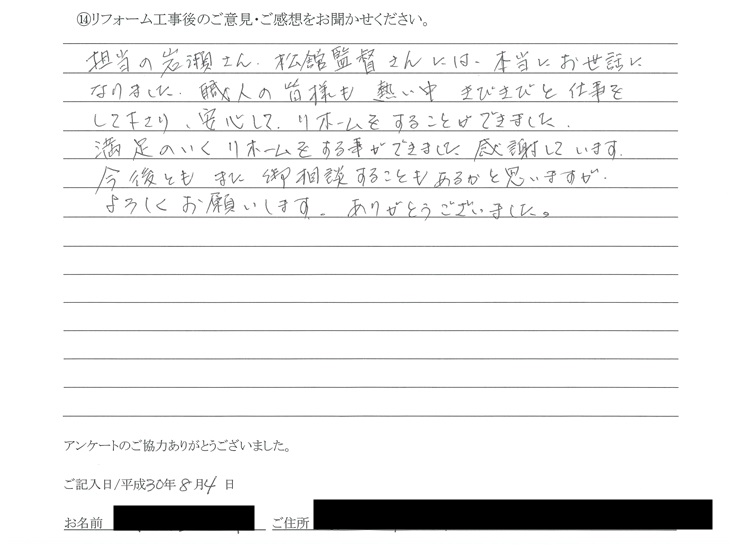 ⑭リフォーム工事後のご意見・ご感想をお聞かせください。
担当の岩瀬さん、松舘監督さんには、本当にお世話に
なりました。職人の皆様も 熱い中 きびきびと仕事を
して下さり、安心して、リホームをすることができました。
満足のいくリホームをする事ができました。感謝しています。
今後とも また 御相談することもあるかと思いますが、
よろしくお願いします。ありがとうございました。
アンケートのご協力ありがとうございました。
ご記入日/平成30年8月4日
お名前 ご住所